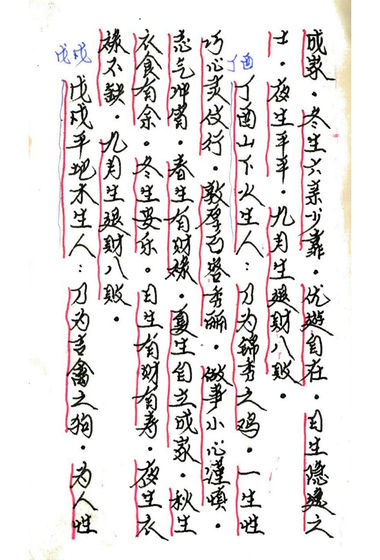 成家。冬生六亲少靠。优游自在。日生隐逸之
士。夜生平平。九月生退财八败。
丁酉
丁酉山下火生人：乃为锦秀之鸡。一生性
巧心灵伎行。敦厚。做事小心谨慎。
志气冲霄。春生有财禄。夏生自立成家。秋生
衣食有余。冬生安乐。日生有财有寿。夜生衣
禄不缺。九月生退财八败。
戊戌
戊戌平地木生人：乃为吉禽之狗。为人性